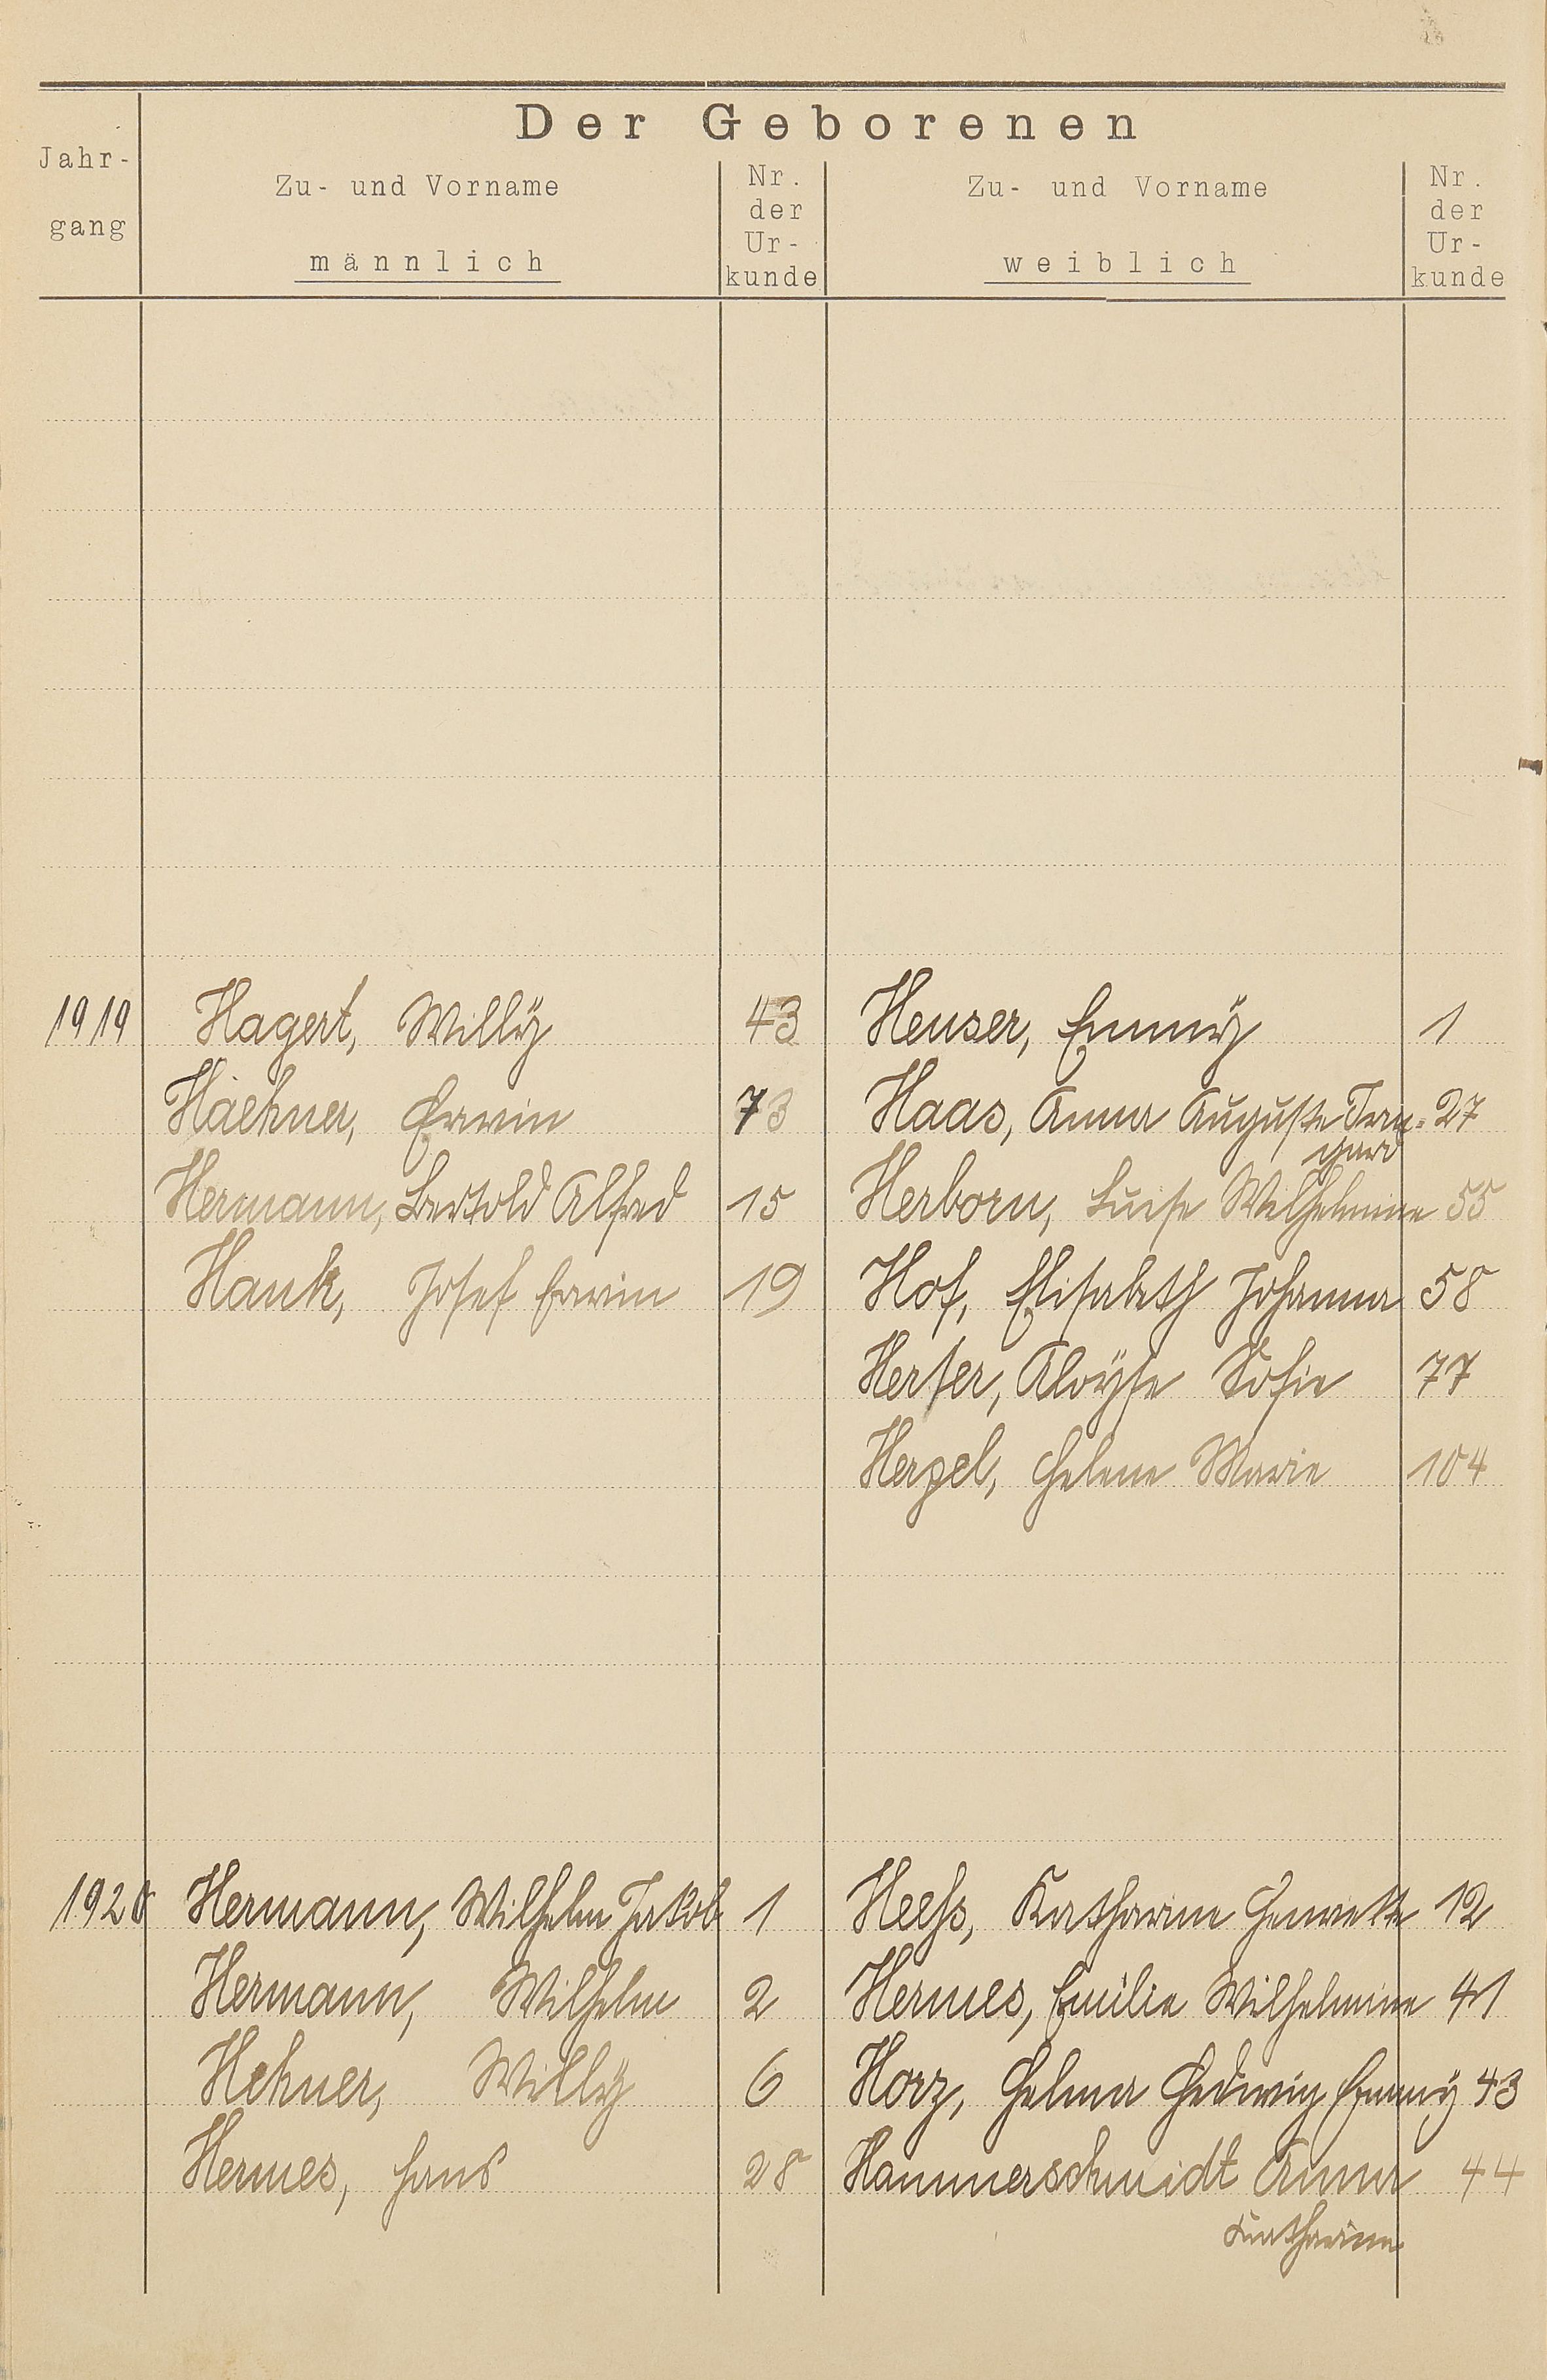 Der Geborenen
Jahr-
gang
Zu- und Vorname
männlich
Nr.
der
Ur-
kunde
Zu- und Vorname
weiblich
Nr.
der
Ur-
kunde
1919 Hagert, Willÿ 43 Heuser, Emmÿ 1
Haehner, Erwin 73 Haas, Anna Auguste Irm= 27
gard
Hermann, Bertold Alfred 15 Herborn, Luise Wilhelmine 55
Hank, Josef Erwin 19 Hof, Elisabeth Johanna 58
Herfer, Aloÿse Sofie 77
Herzel, Helene Marie 104
1920 Hermann, Wilhelm Jakob 1 Heeß, Katharine Henriette 12
Hermann, Wilhelm 2 Hermes, Emilie Wilhelmine 41
Hehner, Willy 6 Horz, Helma Hedwig Emmÿ 43
Hermes, Hans 28 Hammerschmidt Anna 44
Katharine